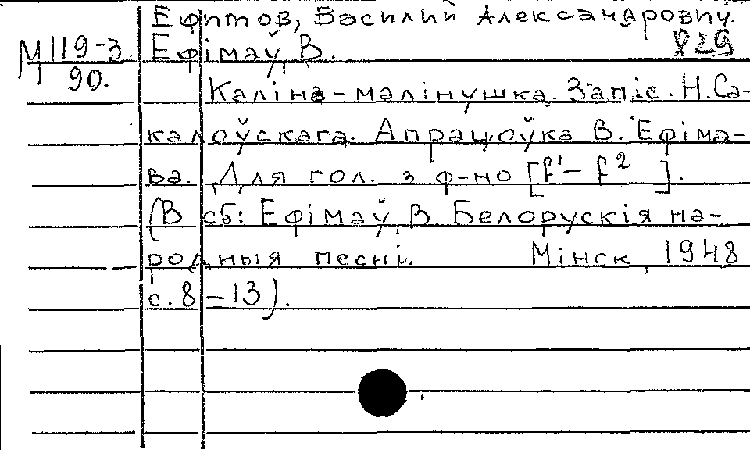 Ефимов, Василий Александрович.
М119-3 Ефімаў, В. 829
90. Каліна-малінушка. Запіс. Н. Са-
калоўскага. Апрацоўка В. Ефіма-
ва. Для гол. з ф-но [f¹ – f²].
(В сб: Ефімаў, В. Белорускія на-
родныя песні. Мінск, 1948
с. 8-13).